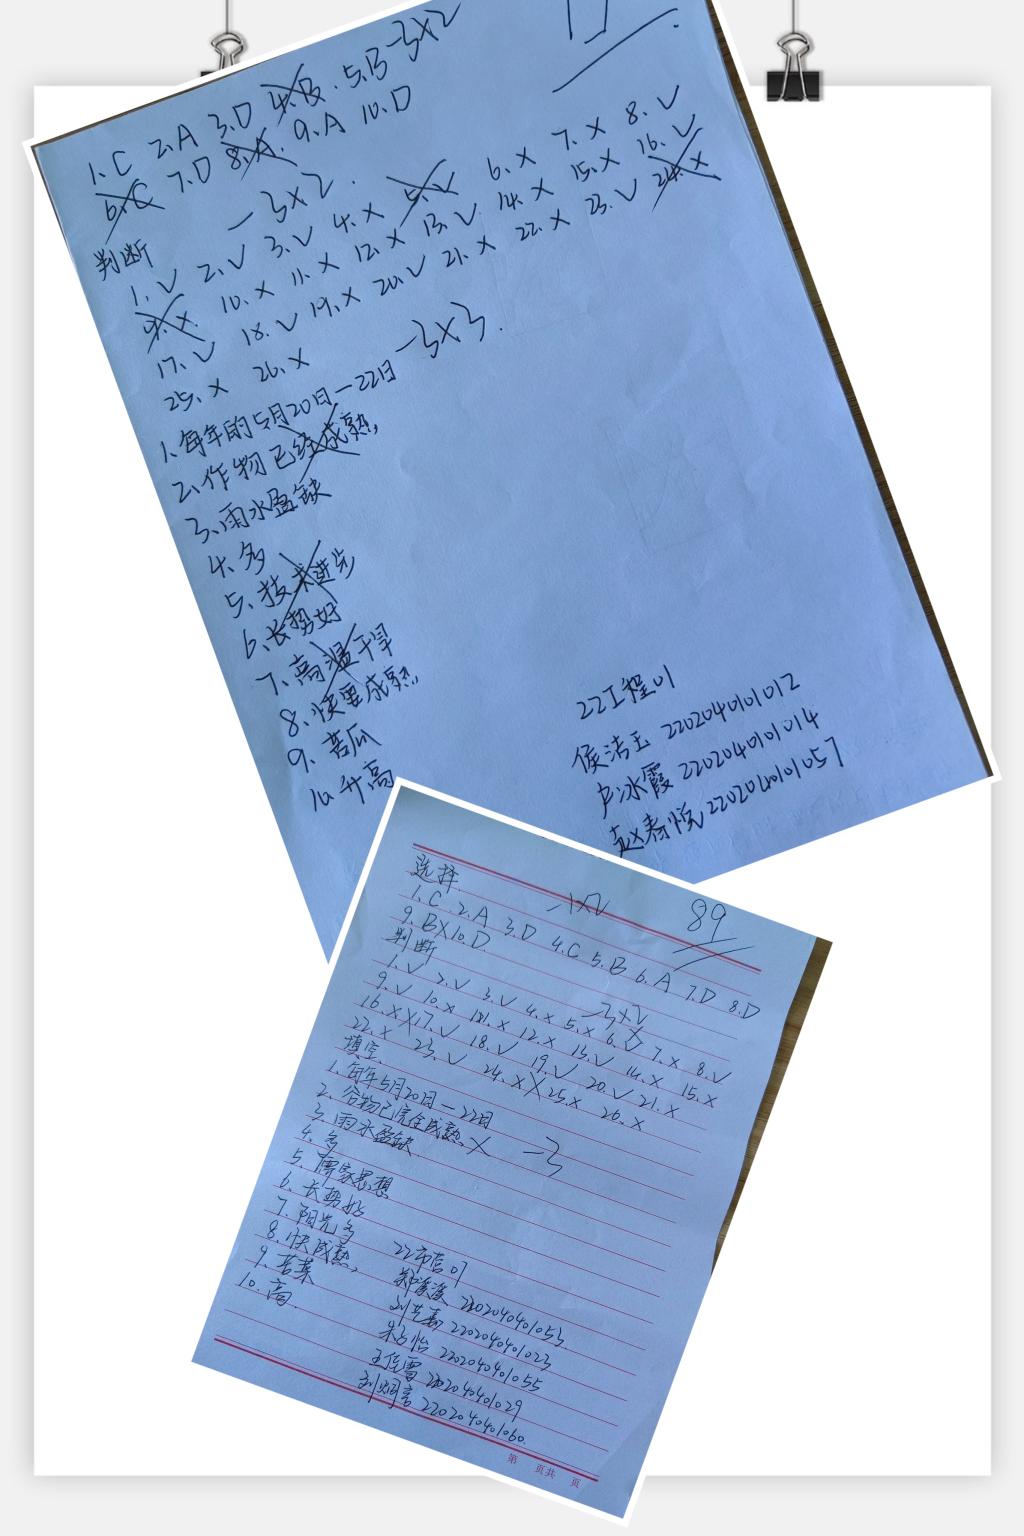 1.C 2.A 3.D 4.B. 5.B -3×2
6.C 7.D 8.A. 9.A 10.D
判断 -3×2.
1.√ 2.√ 3.√ 4.× 5.√ 6.× 7.× 8.√
9.× 10.× 11.× 12.× 13.√ 14.× 15.× 16.√
17.√ 18.√ 19.× 20.√ 21.× 22.× 23.√ 24.×
25.× 26.×
1、每年的5月20日—22日 -3×3.
2、作物已经成熟,
3、雨水盈缺
4、多
5、技术进步
6、长势好
7、高温干旱
8、快要成熟,
9、苦瓜
10、升高
22工程01
侯洁玉 2202040101012
卢冰霞 2202040101014
赵春悦 2202040101057
选择. -1×2 89
1.C 2.A 3.D 4.C 5.B 6.A 7.D 8.D
9.B× 10.D
判断 -3×2
1.√ 2.√ 3.√ 4.× 5.× 6.√ 7.× 8.√
9.√ 10.× 11.× 12.× 13.√ 14.× 15.×
16.×× 17.√ 18.√ 19.√ 20.√ 21.×
22.× 23.√ 24.×× 25.× 26.×
填空.
1. 每年5月20日—22日
2. 谷物已完全成熟.× -3
3. 雨水盈缺
4. 多
5. 儒家思想
6. 长势好
7. 阳光多
8. 快成熟,
9. 苦菜
10. 高.
22市营07
2202040401053
2202040401023
朱 怡 2202040401055
王佳雪 2202040401029
2202040401060.
第 页共 页